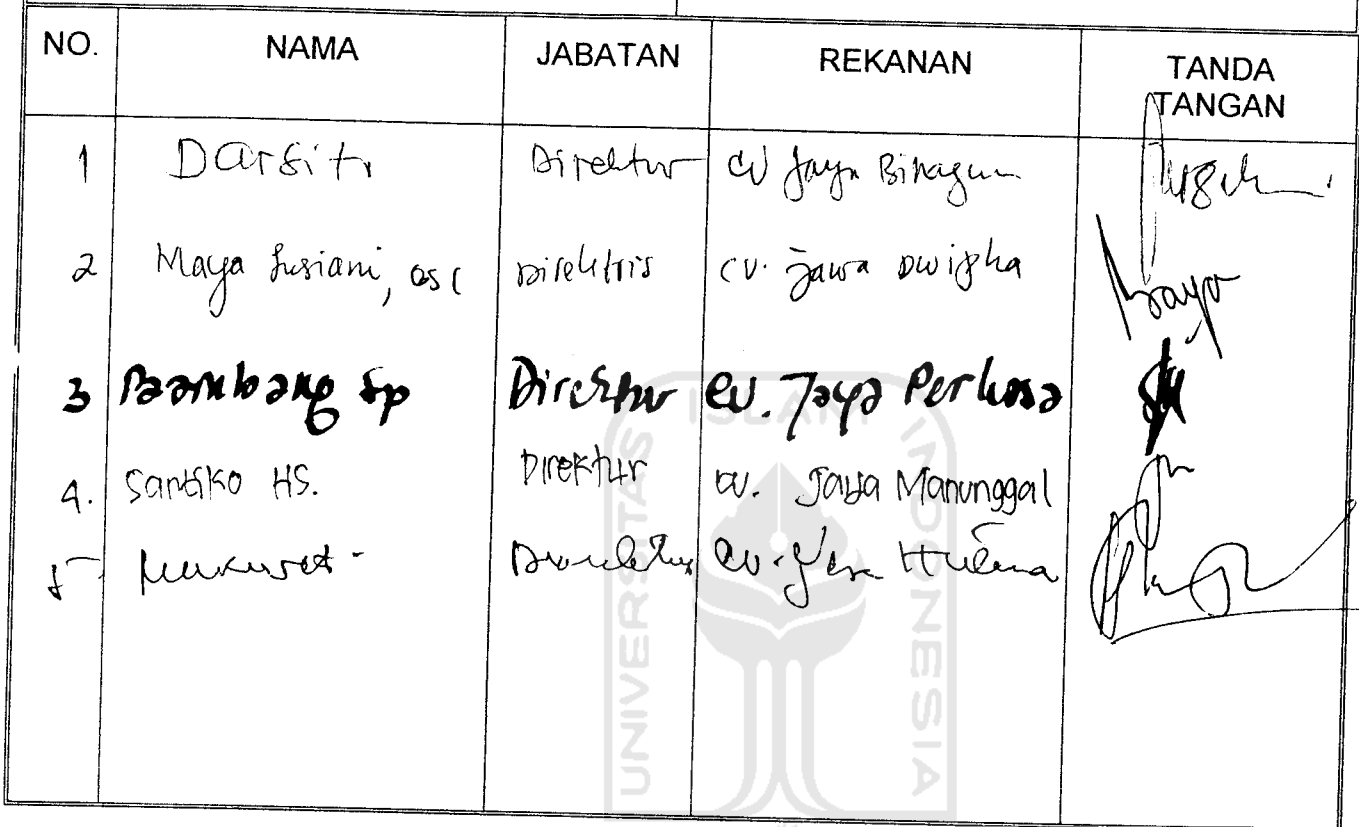 NO. NAMA JABATAN REKANAN TANDA TANGAN
1 Darsiti Direktur CV Jaya
2 Maya Direktris CV. Jawa
3 Bambang Sp Direktur CV. Jaya Perkasa
4. Santiko HS. Direktur CV. Jaya Manunggal
5 Direktur CV.
UNIVERSITAS ISLAM INDONESIA